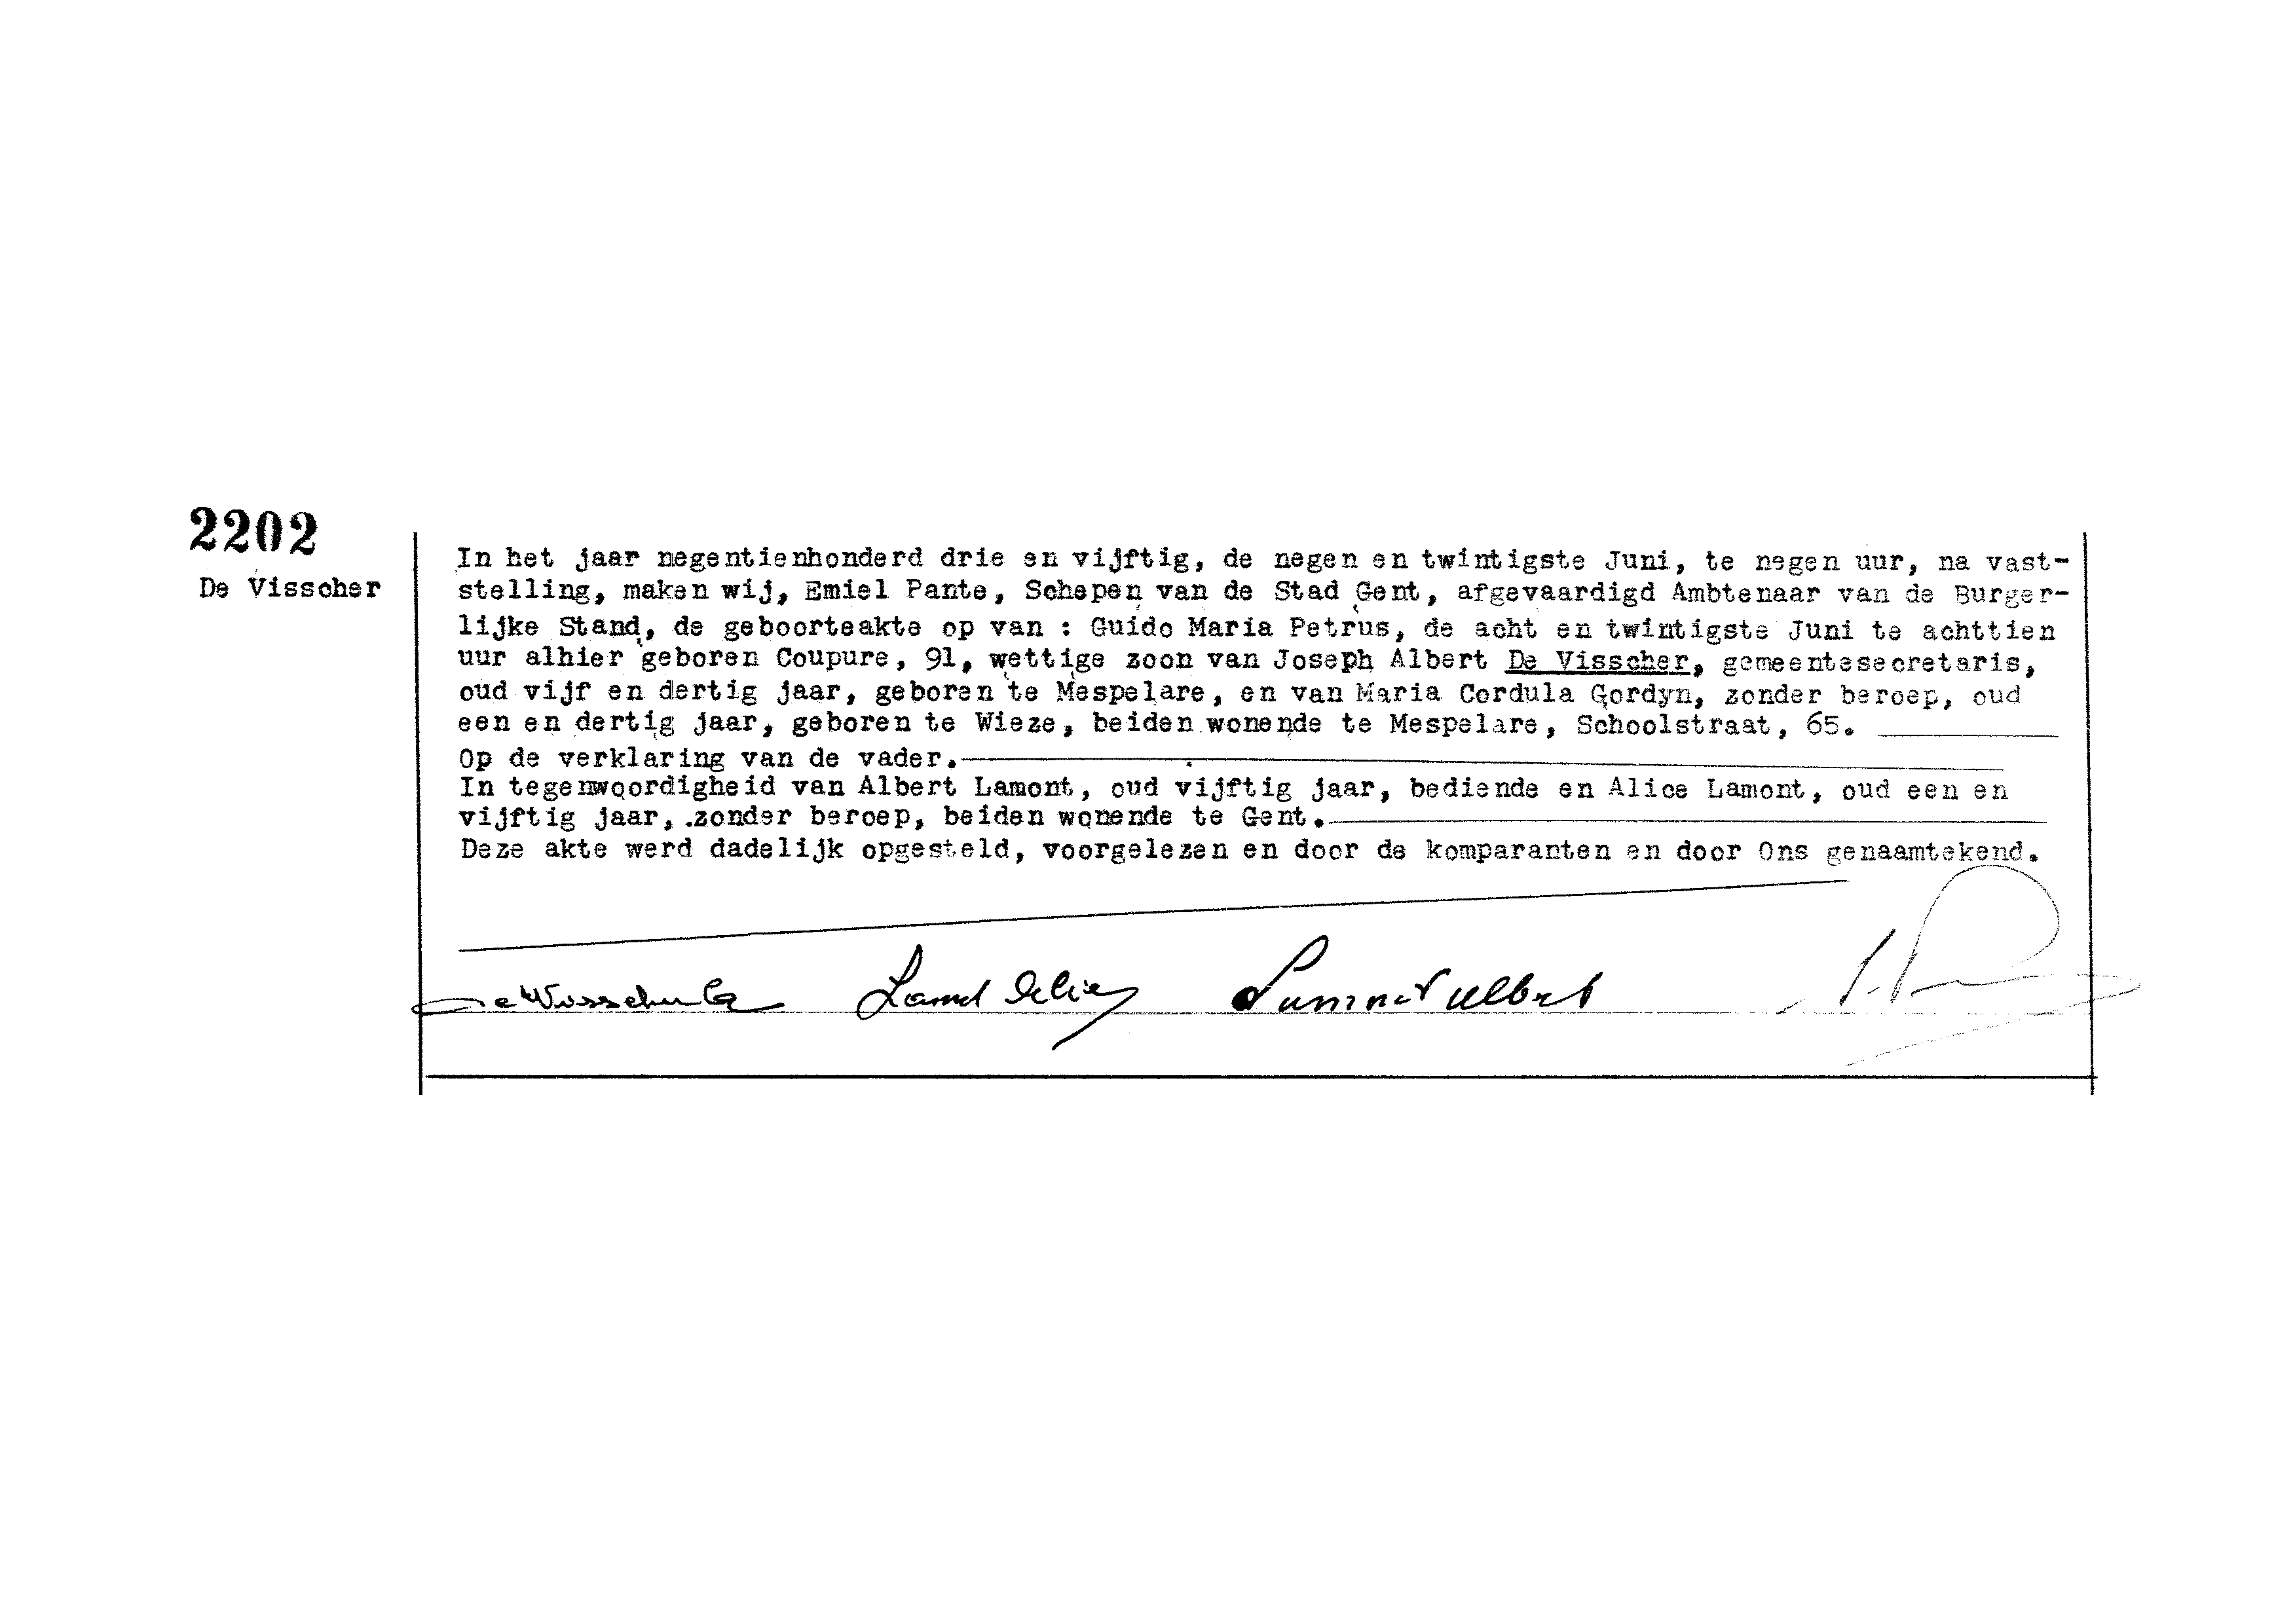 2202
De Visscher
In het jaar negentienhonderd drie en vijftig, de negen en twintigste Juni, te negen uur, na vast-
stelling, maken wij, Emiel Pante, Schepen van de Stad Gent, afgevaardigd Ambtenaar van de Burger-
lijke Stand, de geboorteakte op van : Guido Maria Petrus, de acht en twintigste Juni te achttien
uur alhier geboren Coupure, 91, wettige zoon van Joseph Albert De Visscher, gemeentesecretaris,
oud vijf en dertig jaar, geboren te Mespelare, en van Maria Cordula Gordyn, zonder beroep, oud
een en dertig jaar, geboren te Wieze, beiden wonende te Mespelare, Schoolstraat, 65.
Op de verklaring van de vader.
In tegenwoordigheid van Albert Lamont, oud vijftig jaar, bediende en Alice Lamont, oud een en
vijftig jaar, zonder beroep, beiden wonende te Gent.
Deze akte werd dadelijk opgesteld, voorgelezen en door de komparanten en door Ons genaamtekend.
Lamont Albert